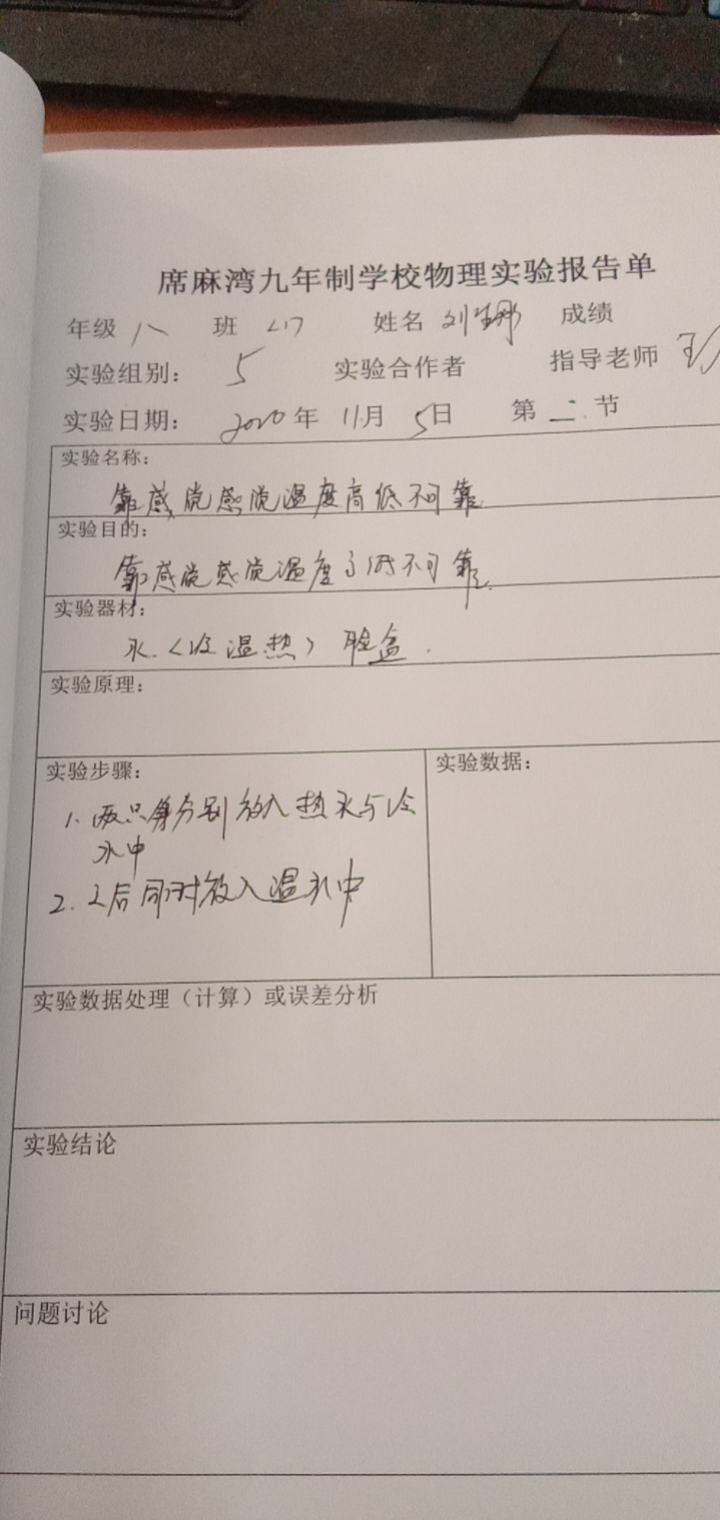 席麻湾九年制学校物理实验报告单
年级 八 班 姓名 刘 成绩
实验组别： 5 实验合作者 指导老师
实验日期： 2020年 11月 5日 第 二 节
实验名称：
靠感觉感觉温度高低不可靠
实验目的：
靠感觉感觉温度高低不可靠.
实验器材：
水.（冷温热） 脸盆.
实验原理：
实验步骤：
1. 两只手分别放入热水与冷
水中
2. 之后同时放入温水中
实验数据：
实验数据处理（计算）或误差分析
实验结论
问题讨论